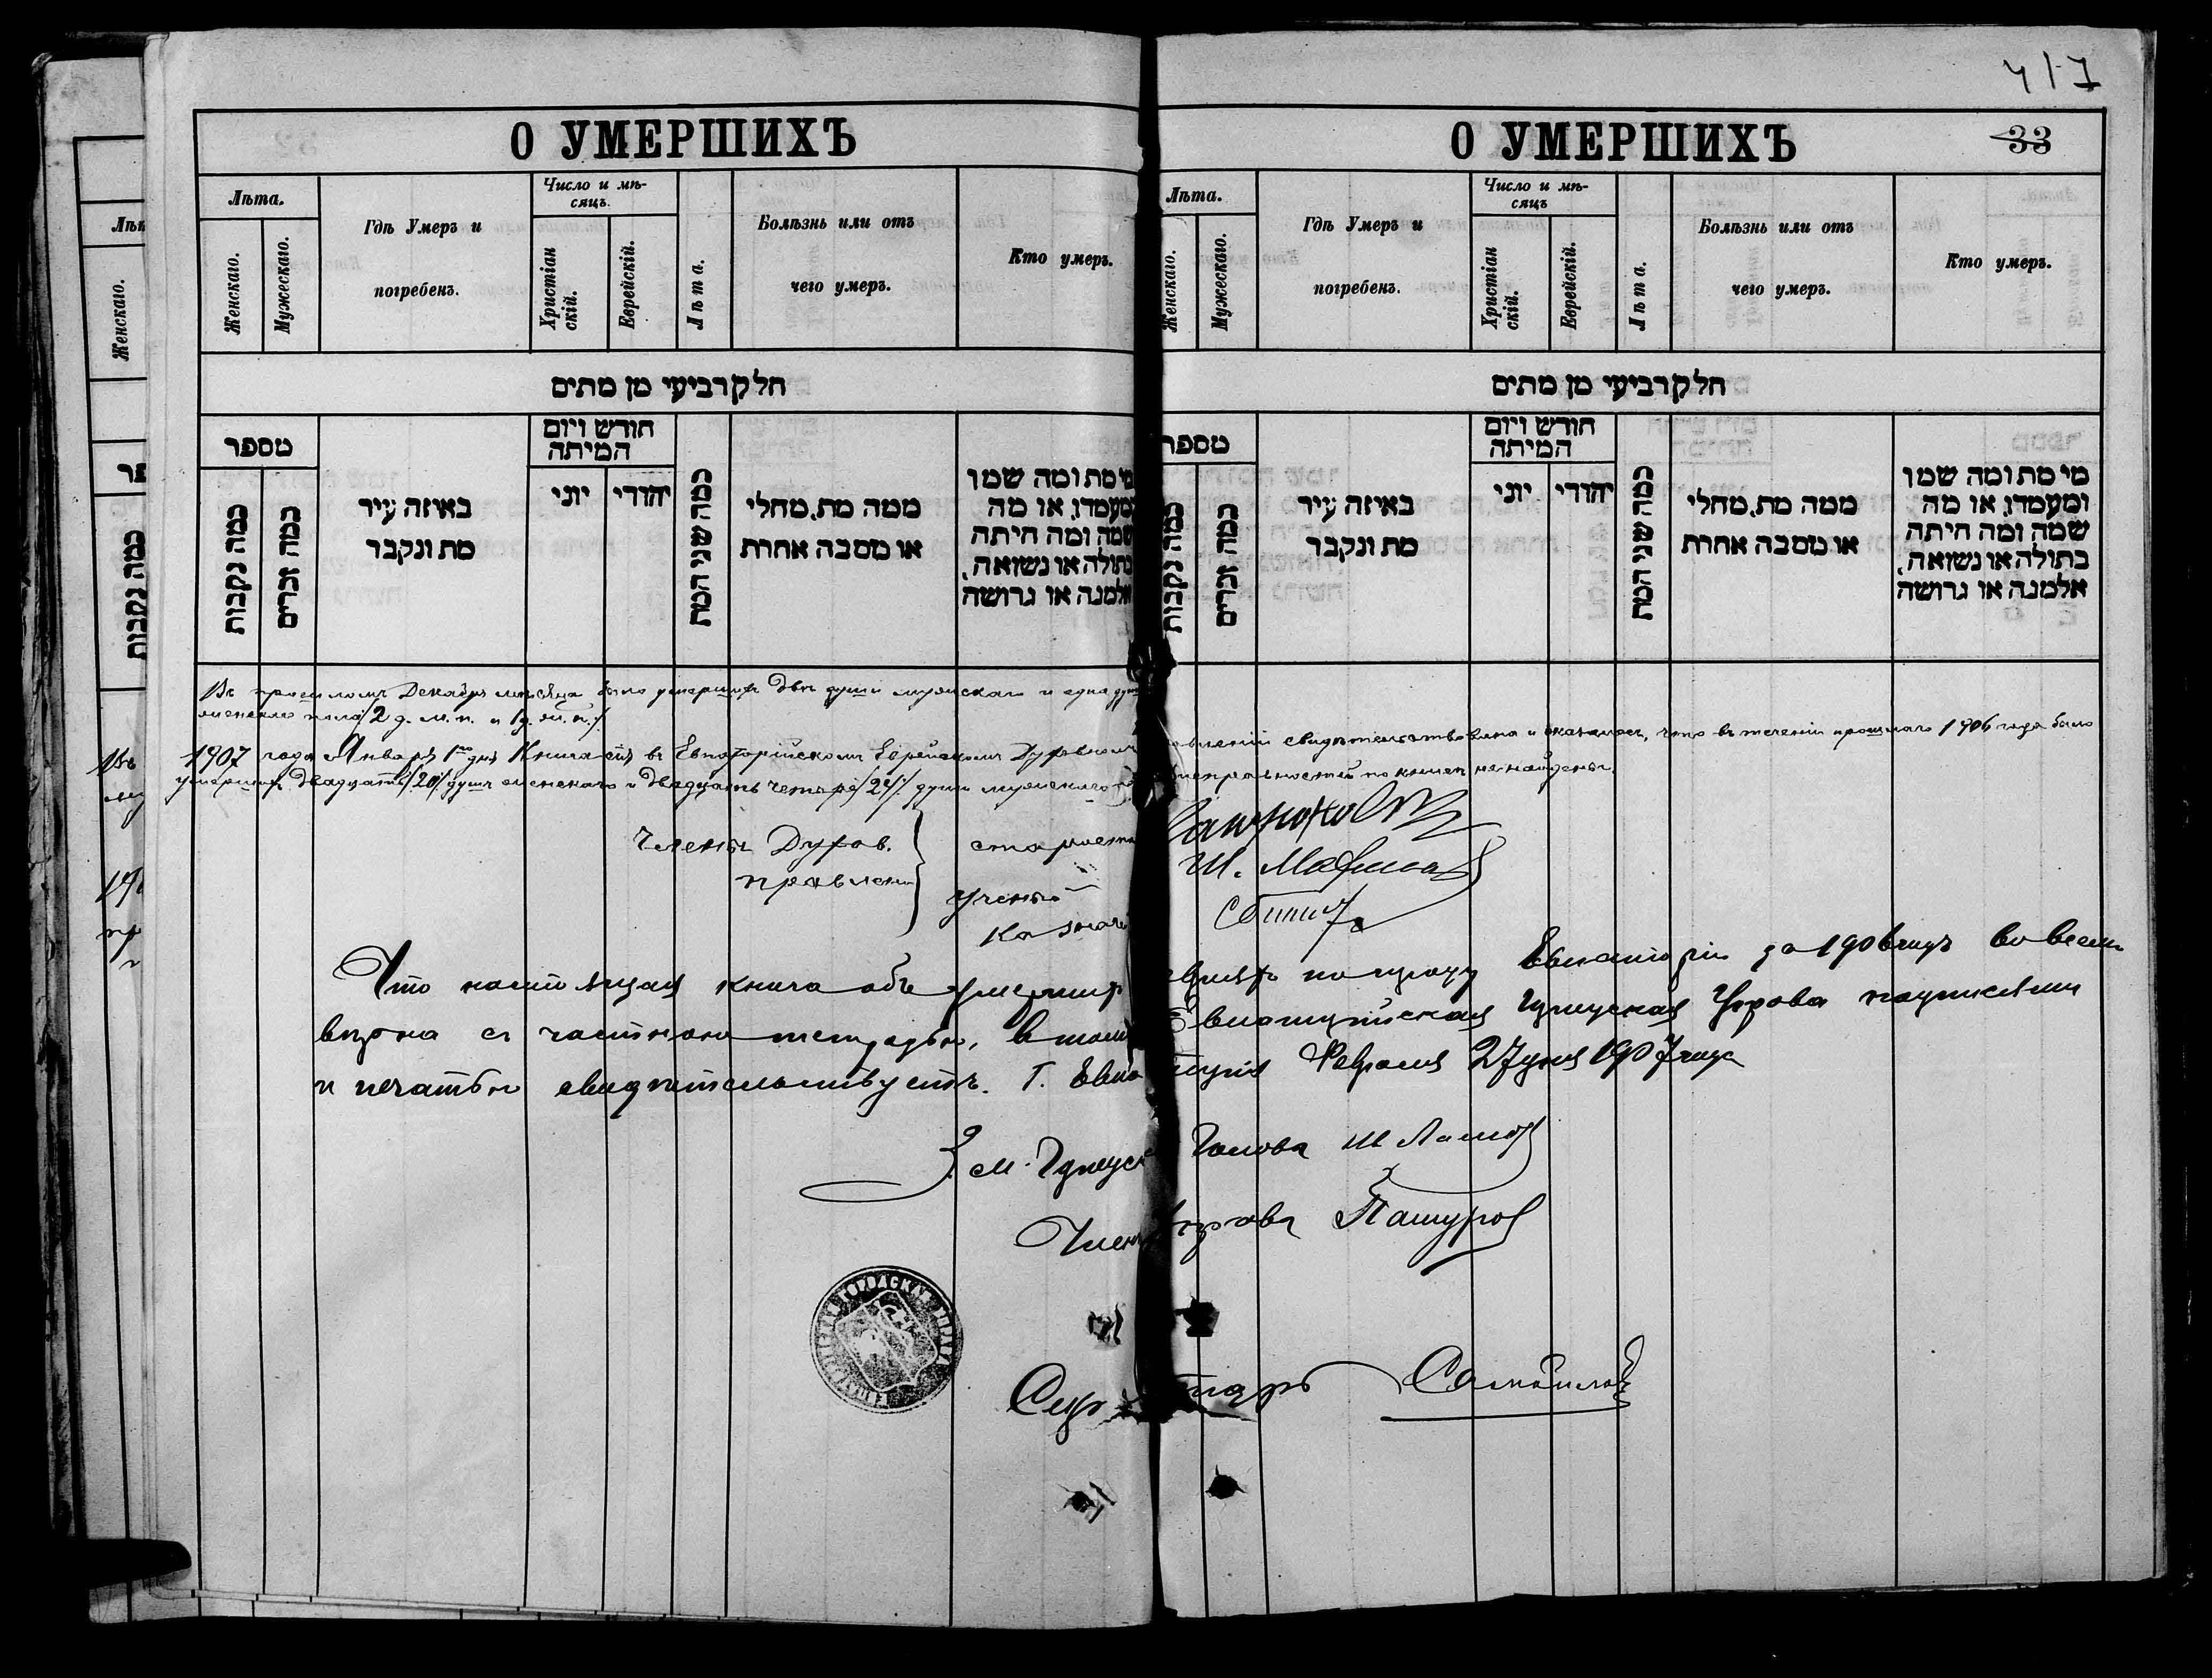 417
О УМЕРШИХЪ
Лѣта.
Женскаго.
Мужескаго.
Гдѣ Умеръ и
погребенъ.
Число и мѣ-
сяцъ.
Христіан
скій.
Еврейскій.
Лѣта.
Болѣзнь или отъ
чего умеръ.
Кто умеръ.
חלק רביעי מן מתים
מספר
כמה נקבות
כמה זכרים
באיזה עיר
מת ונקבר
חודש ויום
המיתה
יוני
יהודי
כמה שני המת
ממה מת, מחלי
או מסבה אחרת
מי מת ומה שמו
ומעמדו, או מה
שמה ומה היתה
בתולה או נשואה,
אלמנה או גרושה
О УМЕРШИХЪ
33
Лѣта.
Женскаго.
Мужескаго.
Гдѣ Умеръ и
погребенъ.
Число и мѣ-
сяцъ
Христіан
скій.
Еврейскій.
Лѣта.
Болѣзнь или отъ
чего умеръ.
Кто умеръ.
חלק רביעי מן מתים
מספר
כמה נקבות
כמה זכרים
באיזה עיר
מת ונקבר
חודש ויום
המיתה
יוני
יהודי
כמה שני המת
ממה מת, מחלי
או מסבה אחרת
מי מת ומה שמו
ומעמדו, או מה
שמה ומה היתה
בתולה או נשואה,
אלמנה או גרושה
Въ прошломъ Декабрѣ мѣсяцѣ было умершихъ двѣ души мужскаго и одна душ
женскаго пола /2 д. м. п. и 1 д. ж. п./
1907 года Января 1го дня Книга сія въ Евпаторійскомъ Еврейскомъ Духовномъ авленіи свидѣтельствована и оказалось, что въ теченіи прошлаго 1906 года было
умершихъ двадцать /20/ душъ женскаго и двадцать четыре /24/ души мужскаго неправильностей по книгѣ не найдены.
Члены Духов.
правленія
староста
Ученый
Казначей
Что настоящая книга объ умершихъ евреяхъ по городу Евпаторіи за 1906 годъ во всемъ
вѣрна съ частною тетрадью, въ томъ Евпаторійская Городская Управа подписями
и печатью свидѣтельствуетъ. Г. Евпаторія Февраля 27 дня 1907 года
Зам. Городск Голова
Членъ Управы
Секретарь Самойлов